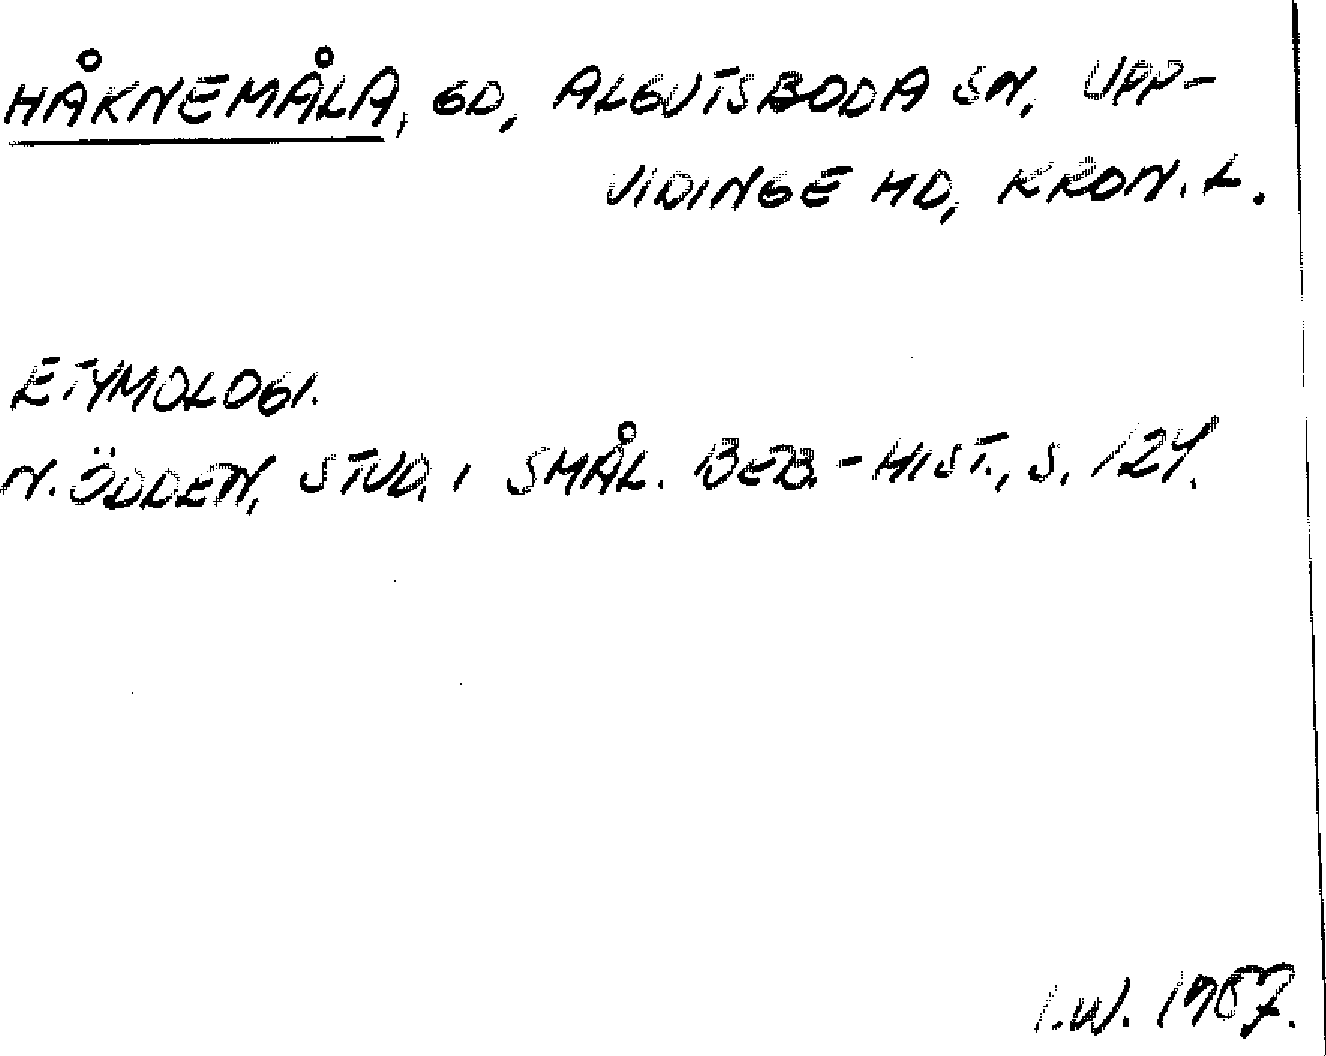 HÅKNEMÅLA, GD, ALGUTSBODA SN, UPP-
VIDINGE HD, KRON. L.
ETYMOLOGI.
N. ÖDDEN, STUD. I SMÅL. BEB.-HIST., S. 124.
I.W. 1987.